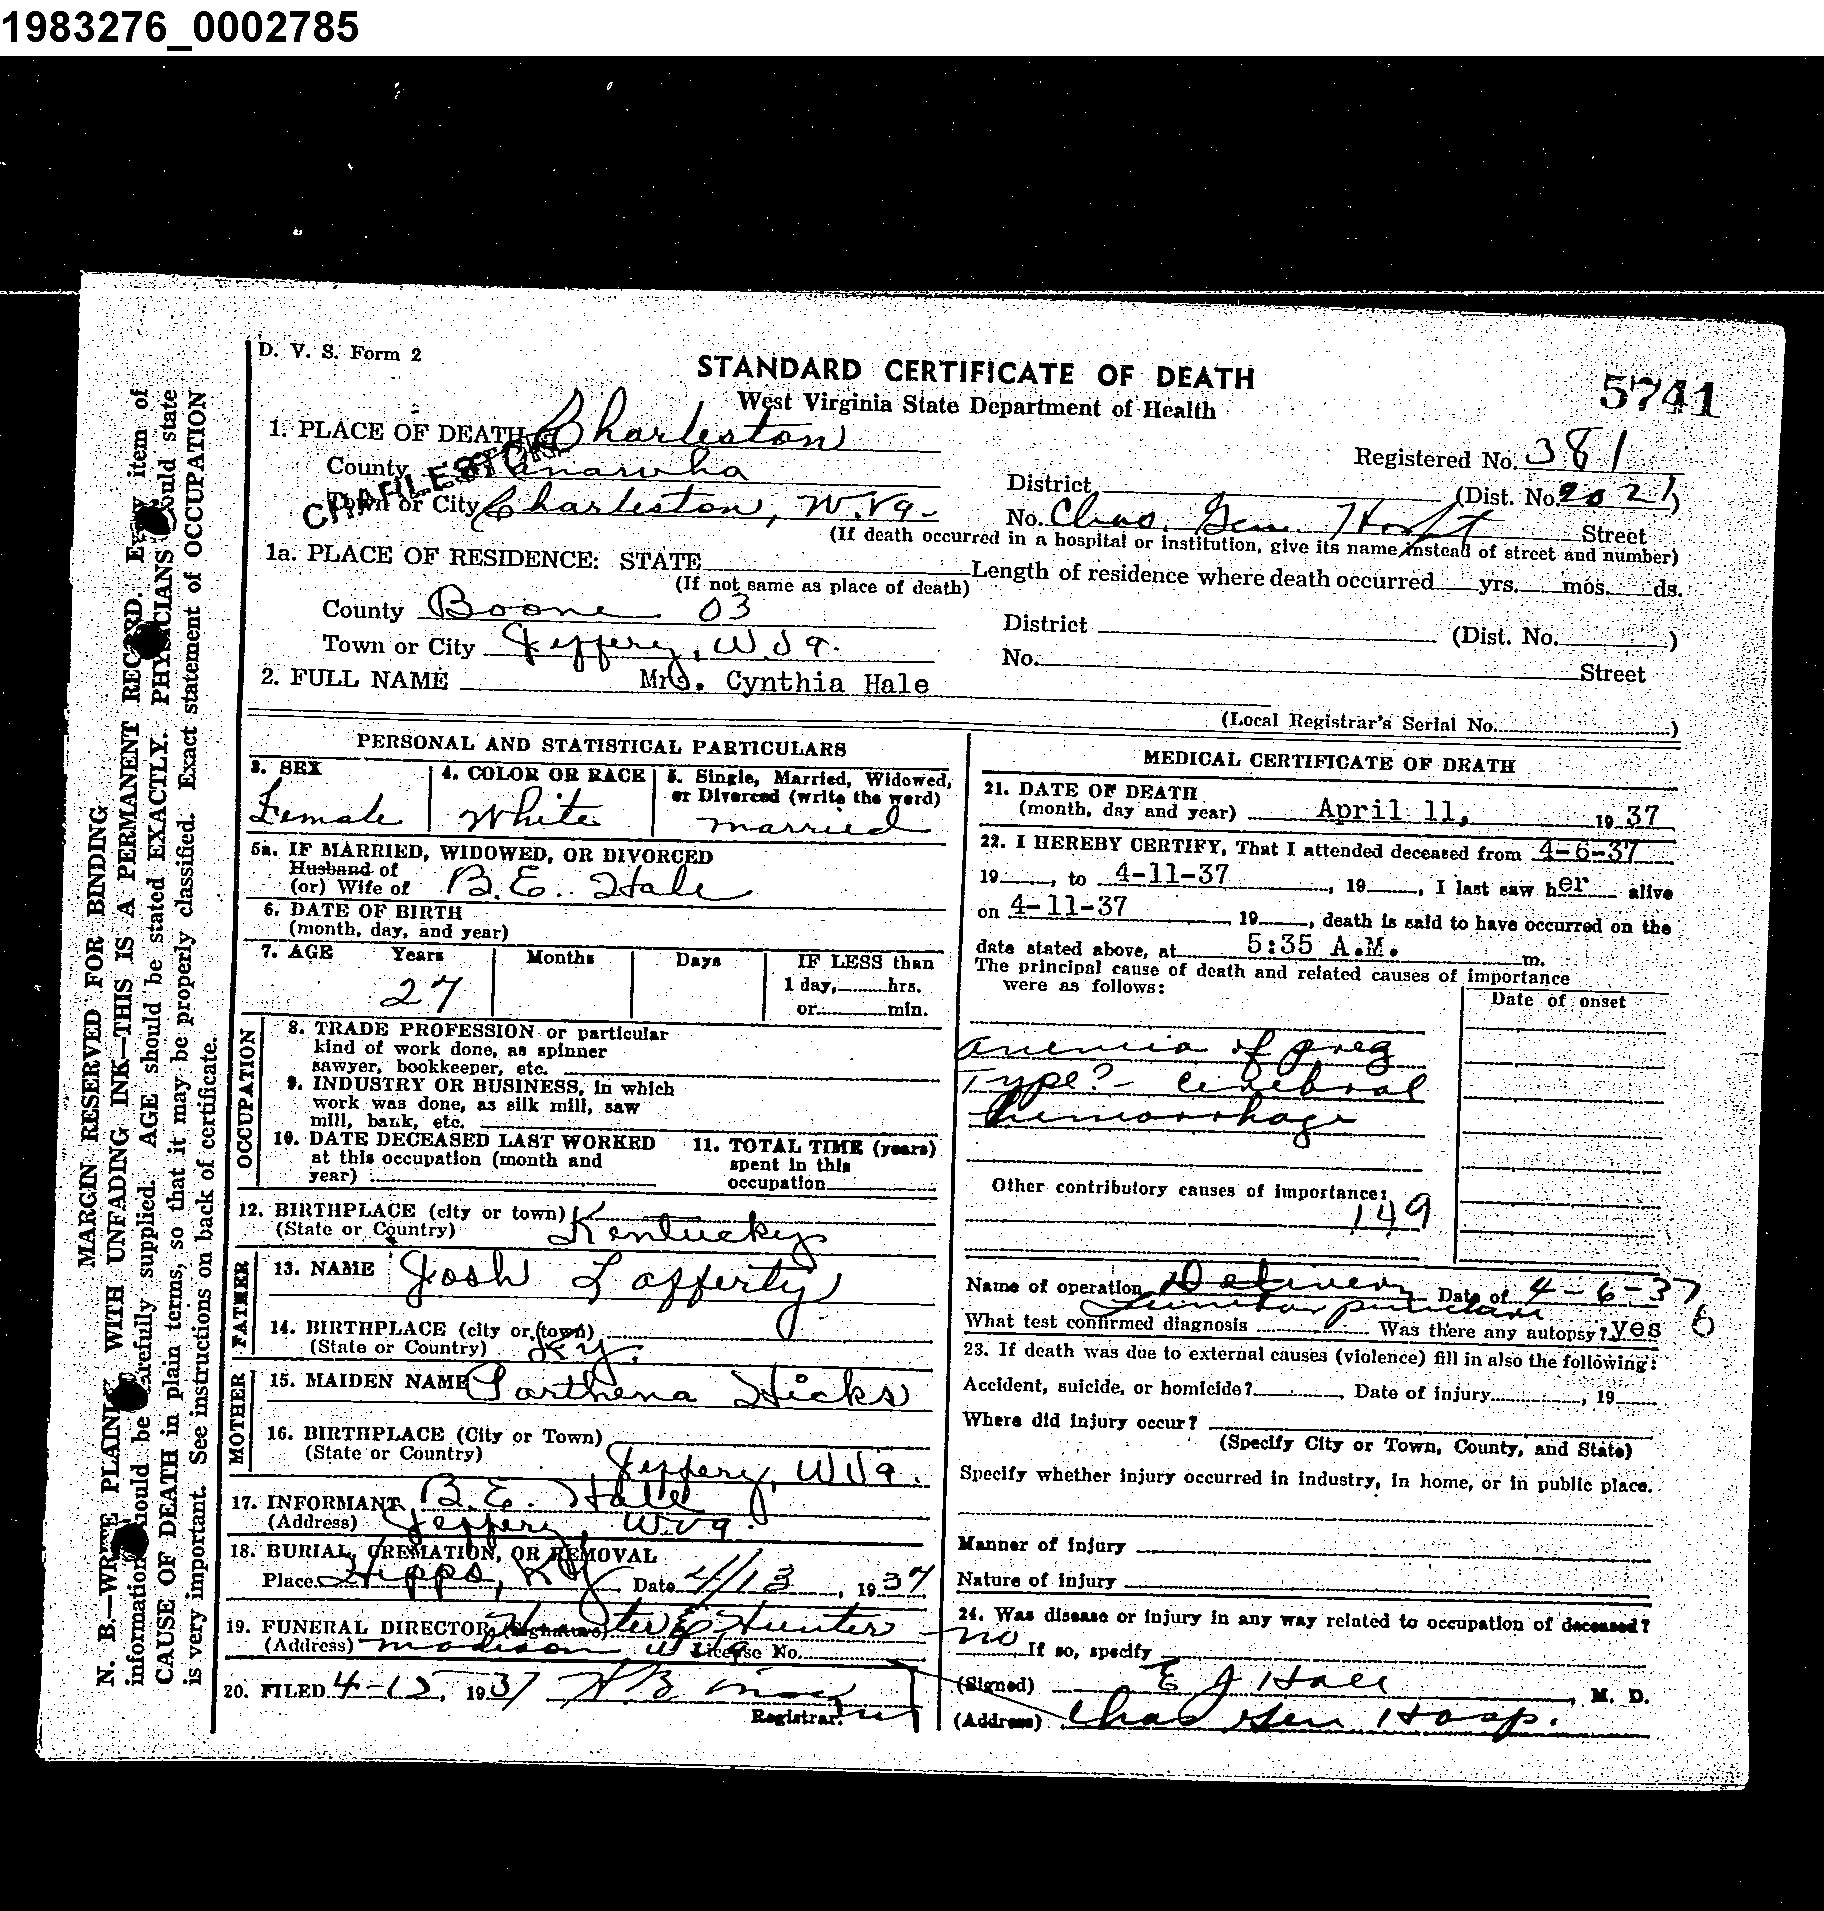 1983276_0002785
D. V. S. Form 2
STANDARD CERTIFICATE OF DEATH
West Virginia State Department of Health
5741
1. PLACE OF DEATH Charleston
CHARLESTON
Registered No. 381
County Kanawha
District (Dist. No. 2021)
Town or City Charleston, W.Va-
No. Chas. Gen. Hospt Street
(If death occurred in a hospital or institution, give its name instead of street and number)
1a. PLACE OF RESIDENCE: STATE
(If not same as place of death)
Length of residence where death occurred yrs. mos. ds.
County Boone 03
District (Dist. No. )
Town or City Jeffery, W.Va.
No. Street
2. FULL NAME Mrs. Cynthia Hale
(Local Registrar's Serial No. )
PERSONAL AND STATISTICAL PARTICULARS
3. SEX
Female
4. COLOR OR RACE
White
5. Single, Married, Widowed,
or Divorced (write the word)
married
5a. IF MARRIED, WIDOWED, OR DIVORCED
Husband of
(or) Wife of B.E. Hale
6. DATE OF BIRTH
(month, day, and year)
7. AGE Years Months Days IF LESS than
27
1 day, hrs.
or min.
OCCUPATION
8. TRADE PROFESSION or particular
kind of work done, as spinner
sawyer, bookkeeper, etc.
9. INDUSTRY OR BUSINESS, in which
work was done, as silk mill, saw
mill, bank, etc.
10. DATE DECEASED LAST WORKED
at this occupation (month and
year)
11. TOTAL TIME (years)
spent in this
occupation
12. BIRTHPLACE (city or town)
(State or Country) Kentucky
FATHER
13. NAME Josh Lafferty
14. BIRTHPLACE (city or town)
(State or Country) Ky.
MOTHER
15. MAIDEN NAME Parthena Hicks
16. BIRTHPLACE (City or Town)
(State or Country) Jeffery, W Va.
17. INFORMANT B.E. Hale
(Address) Jeffery, W.Va.
18. BURIAL, CREMATION, OR REMOVAL
Place Hipps, Ky Date 4/13, 1937
19. FUNERAL DIRECTOR (Signature) Hunter & Hunter
(Address) Madison W.Va. License No.
20. FILED 4-15, 1937
Registrar.
MEDICAL CERTIFICATE OF DEATH
21. DATE OF DEATH
(month, day and year) April 11, 1937
22. I HEREBY CERTIFY, That I attended deceased from 4-6-37
19 , to 4-11-37 , 19 , I last saw her alive
on 4-11-37 19 , death is said to have occurred on the
date stated above, at 5:35 A.M. m.
The principal cause of death and related causes of importance
were as follows:
Date of onset
anemia of preg
Type? - cerebral
hemorrhage
Other contributory causes of importance:
149
Name of operation Delivery Date of 4-6-37
lumbar puncture
What test confirmed diagnosis Was there any autopsy? yes 6
23. If death was due to external causes (violence) fill in also the following:
Accident, suicide, or homicide? , Date of injury , 19
Where did injury occur?
(Specify City or Town, County, and State)
Specify whether injury occurred in industry, in home, or in public place.
Manner of injury
Nature of injury
24. Was disease or injury in any way related to occupation of deceased?
no If so, specify
(Signed) E J Hall, M. D.
(Address) Chas Gen Hosp.
MARGIN RESERVED FOR BINDING
N. B.—WRITE PLAINLY WITH UNFADING INK—THIS IS A PERMANENT RECORD. Every item of
information should be carefully supplied. AGE should be stated EXACTLY. PHYSICIANS should state
CAUSE OF DEATH in plain terms, so that it may be properly classified. Exact statement of OCCUPATION
is very important. See instructions on back of certificate.